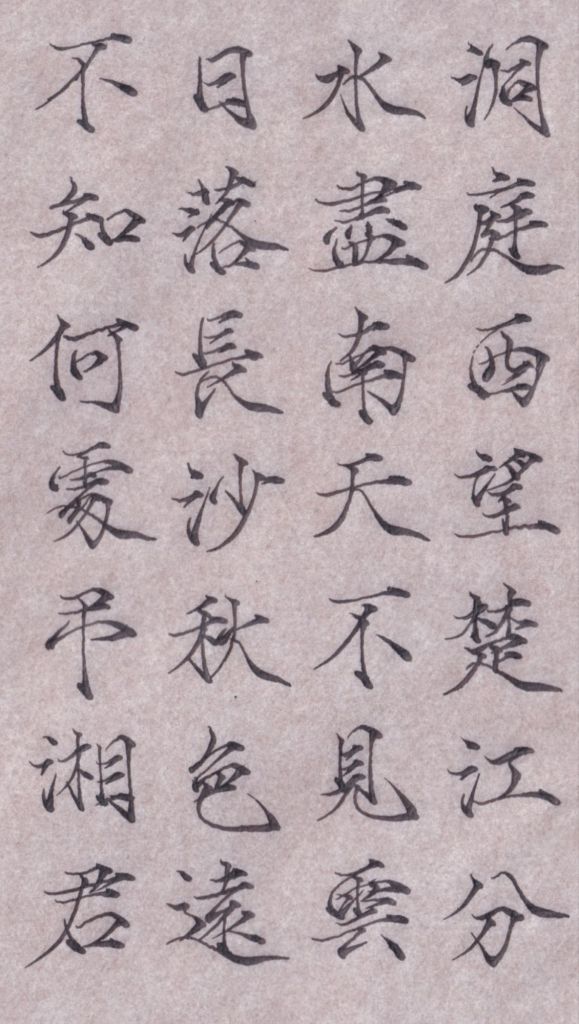 洞庭西望楚江分
水盡南天不見雲
日落長沙秋色遠
不知何處弔湘君